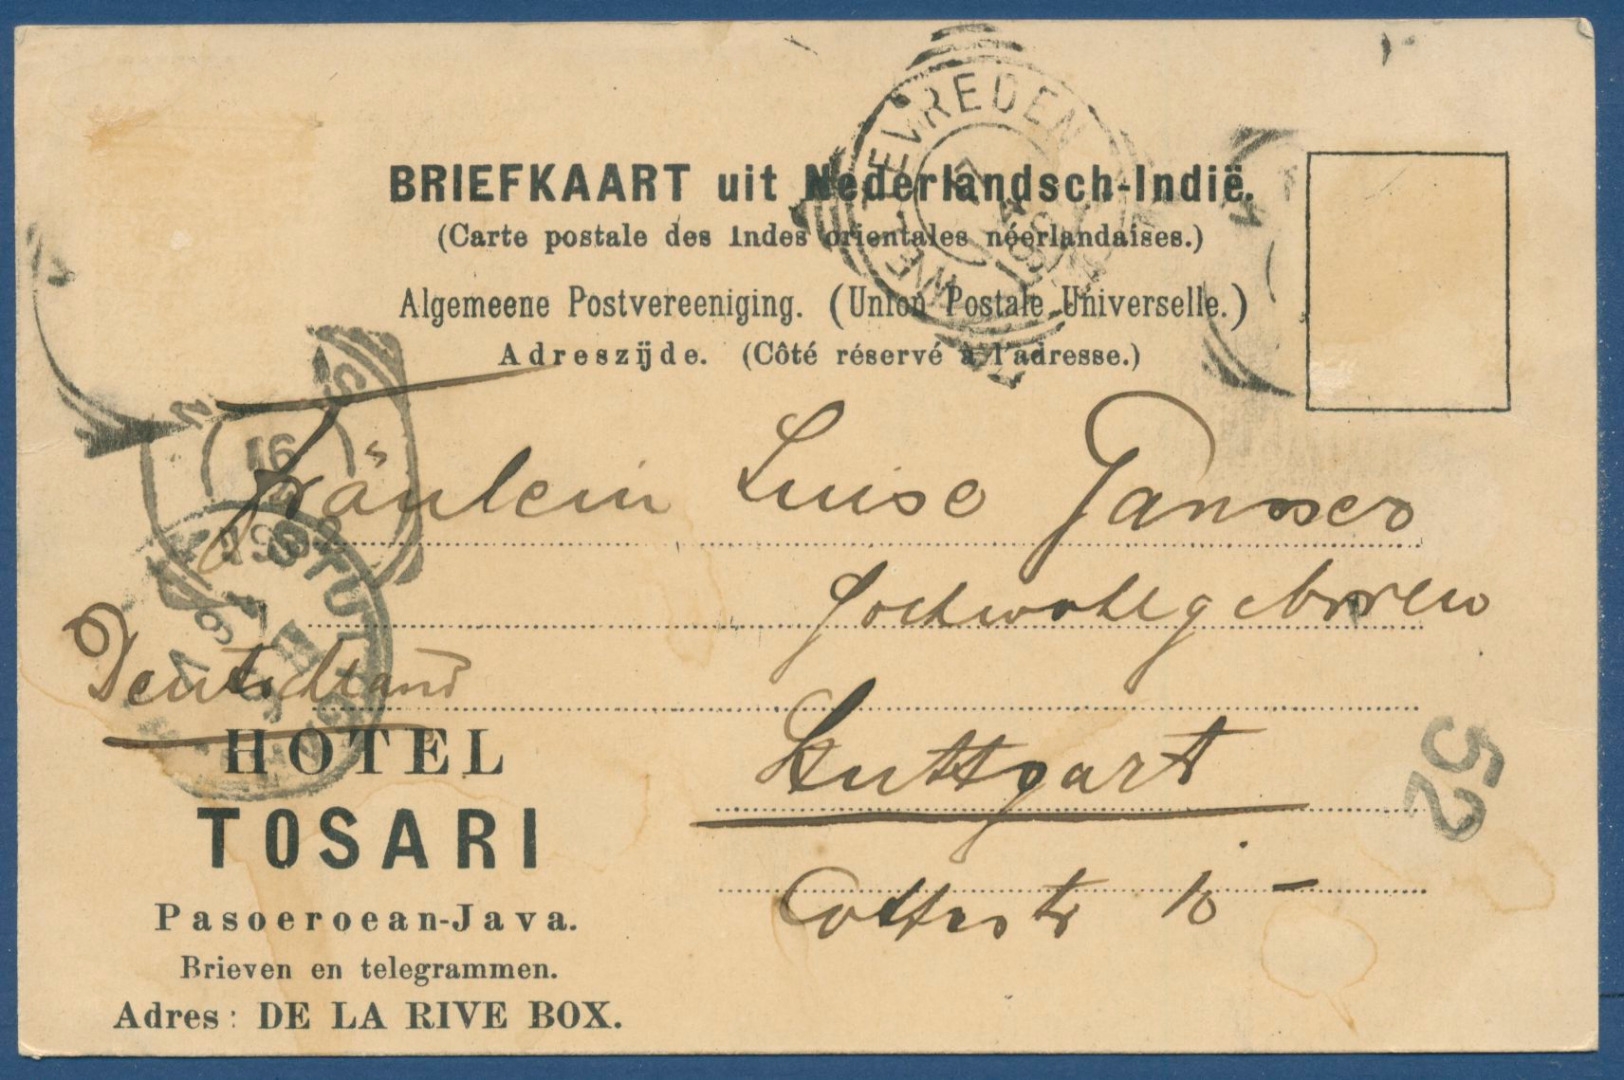 BRIEFKAART uit Nederlandsch-Indië.
(Carte postale des Indes orientales néerlandaises.)
Algemeene Postvereeniging. (Union Postale Universelle.)
Adreszijde. (Côté réservé à l'adresse.)
WELTEVREDEN
Fräulein Luise Ganser
Hochwohlgeboren
Deutschland
Stuttgart
52
HOTEL
TOSARI
Pasoeroean-Java.
Brieven en telegrammen.
Adres: DE LA RIVE BOX.